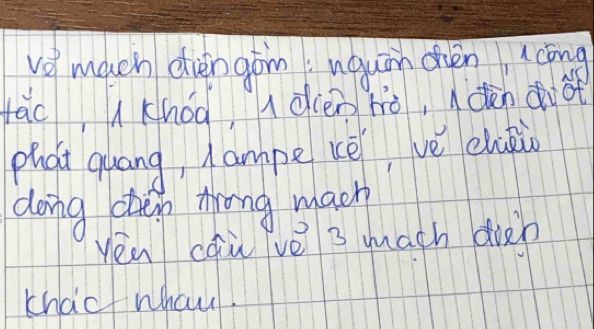 vẽ mạch điện gồm : nguồn điện, 1 công
tắc, 1 khóa, 1 điện trở, 1 đèn đi ốt
phát quang, 1 ampe kế, vẽ chiều
dòng điện trong mạch
Yêu cầu vẽ 3 mạch điện
khác nhau.